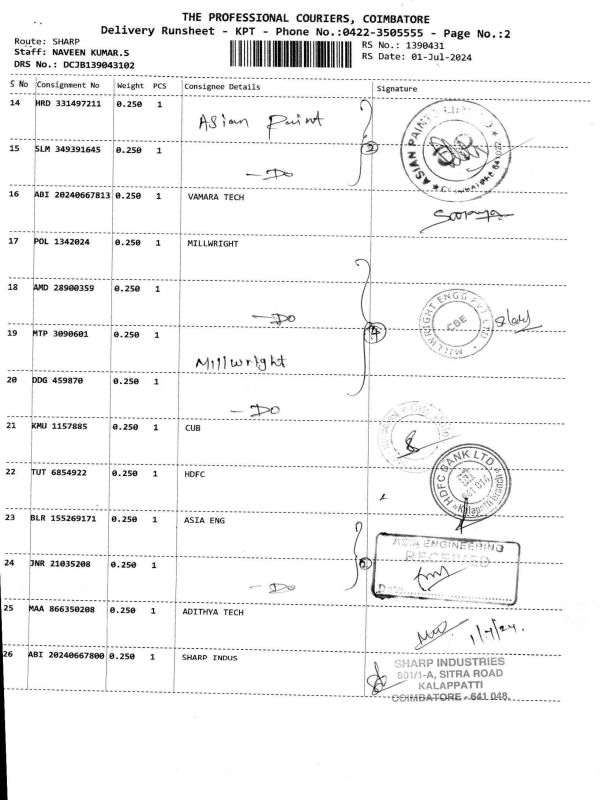 THE PROFESSIONAL COURIERS, COIMBATORE
Delivery Runsheet - KPT - Phone No.:0422-3505555 - Page No.:2
Route: SHARP
Staff: NAVEEN KUMAR.S
DRS No.: DCJB139043102
RS No.: 1390431
RS Date: 01-Jul-2024
S No Consignment No Weight PCS Consignee Details Signature
14 HRD 331497211 0.250 1 Asian Paint
15 SLM 349391645 0.250 1 - Do 2
ASIAN PAINTS LIMITED
COIMBATORE 641 022
16 ABI 20240667813 0.250 1 VAMARA TECH
17 POL 1342024 0.250 1 MILLWRIGHT
18 AMD 28900359 0.250 1 - Do
MILLWRIGHT ENGG PVT LTD
CBE
19 MTP 3090601 0.250 1 Millwright 4
20 DDG 459870 0.250 1 - Do
21 KMU 1157885 0.250 1 CUB
22 TUT 6854922 0.250 1 HDFC
HDFC BANK LTD
641 014
Kalapatti Branch
23 BLR 155269171 0.250 1 ASIA ENG
ASIA ENGINEERING
RECEIVED
Date
24 JNR 21035208 0.250 1 - Do
25 MAA 866350208 0.250 1 ADITHYA TECH 1/7/24.
26 ABI 20240667800 0.250 1 SHARP INDUS
SHARP INDUSTRIES
601/1-A, SITRA ROAD
KALAPPATTI
COIMBATORE - 641 048.